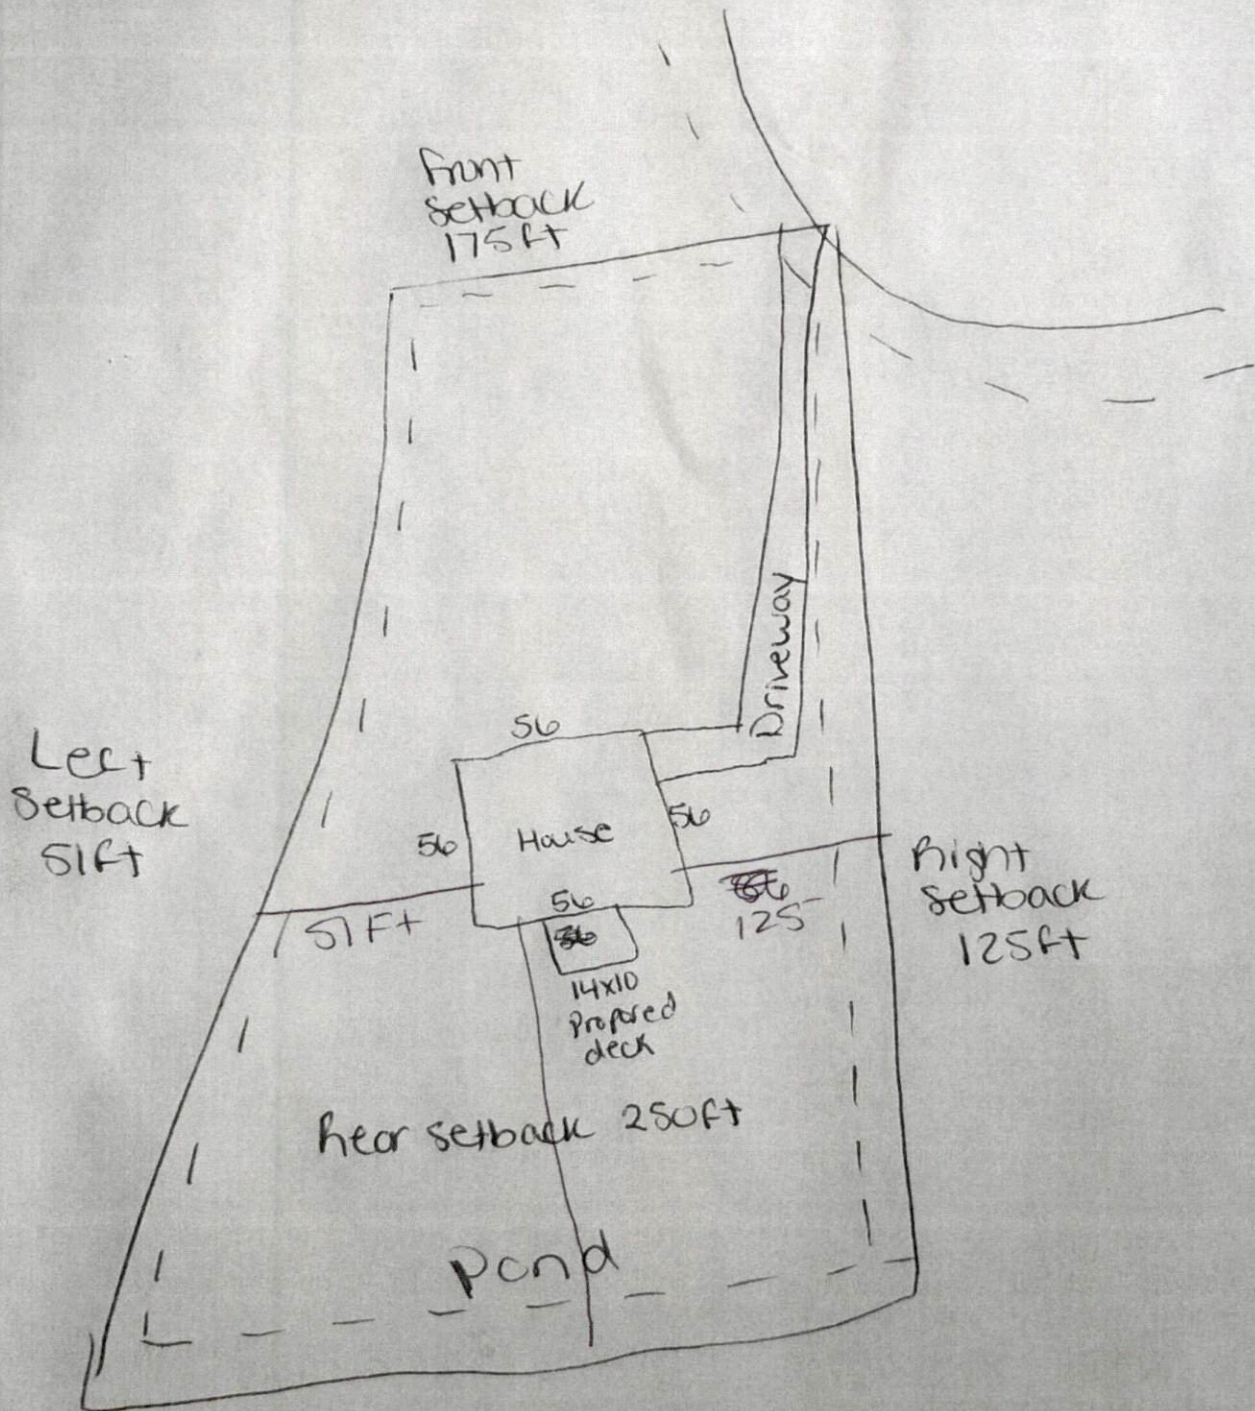 Front
Setback
175ft
Driveway
56
Left
Setback
51ft
56
House
56
Right
Setback
125ft
56
51Ft
125
14x10
Propored
deck
Rear setback 250ft
Pond